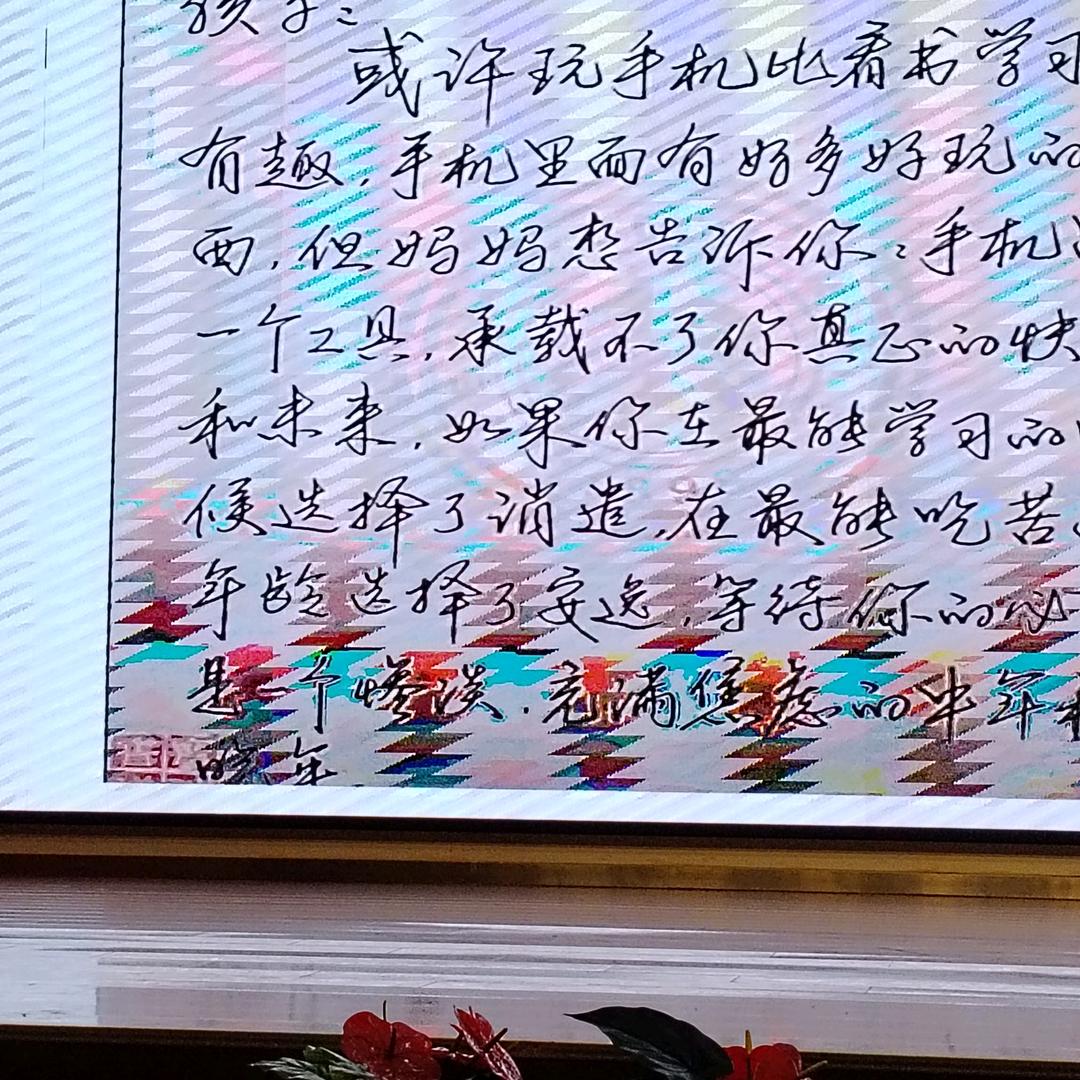 孩子：
或许玩手机比看书学习
有趣，手机里面有好多好玩的
西，但妈妈想告诉你：手机
一个工具，承载不了你真正的快
和未来，如果你在最能学习的
候选择了消遣，在最能吃苦
年龄选择了安逸，等待你的
是一个惨淡、充满焦虑的中年和
晚年